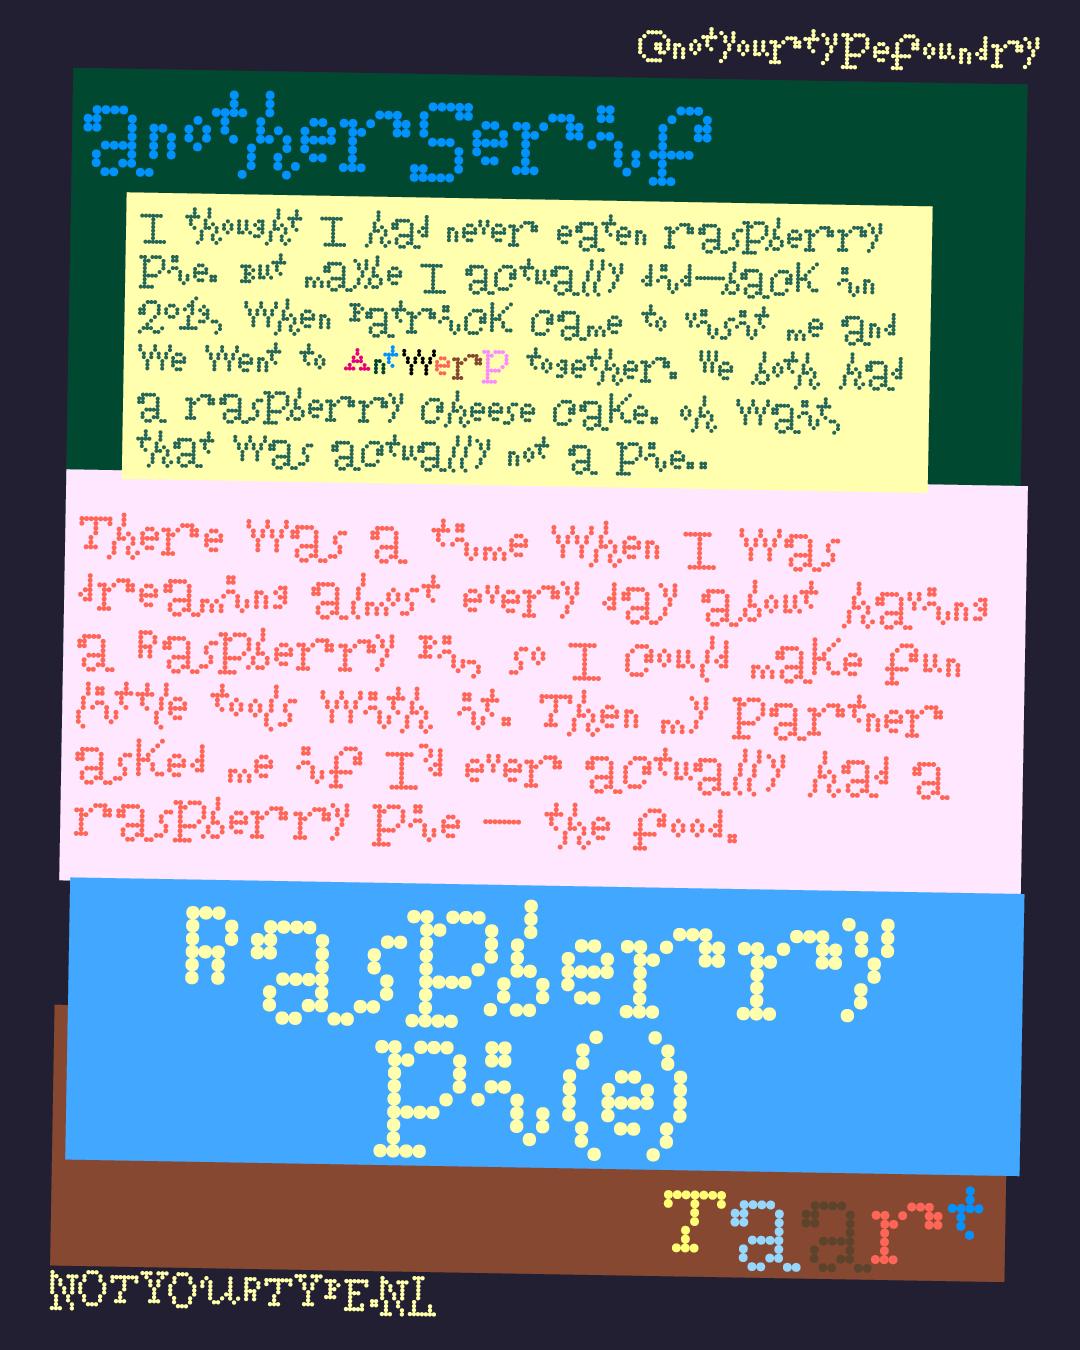 @notyourtypefoundry
anotherSerif
I thought I had never eaten raspberry
pie. But maybe I actually did—back in
2019, when Patrick came to visit me and
we went to AntWerp together. We both had
a raspberry cheese cake. oh wait,
that was actually not a pie..
There was a time when I was
dreaming almost every day about having
a Raspberry Pi, so I could make fun
little tools with it. Then my partner
asked me if I'd ever actually had a
raspberry pie — the food.
Raspberry
pi(e)
Taart
NOTYOURTYPE.NL